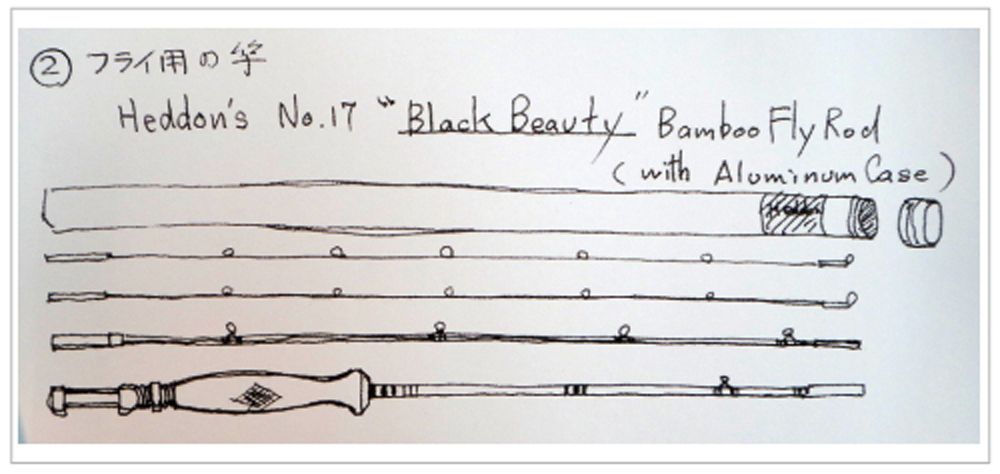 ② フライ用の竿
Heddon's No.17 "Black Beauty" Bamboo Fly Rod
(with Aluminum Case)